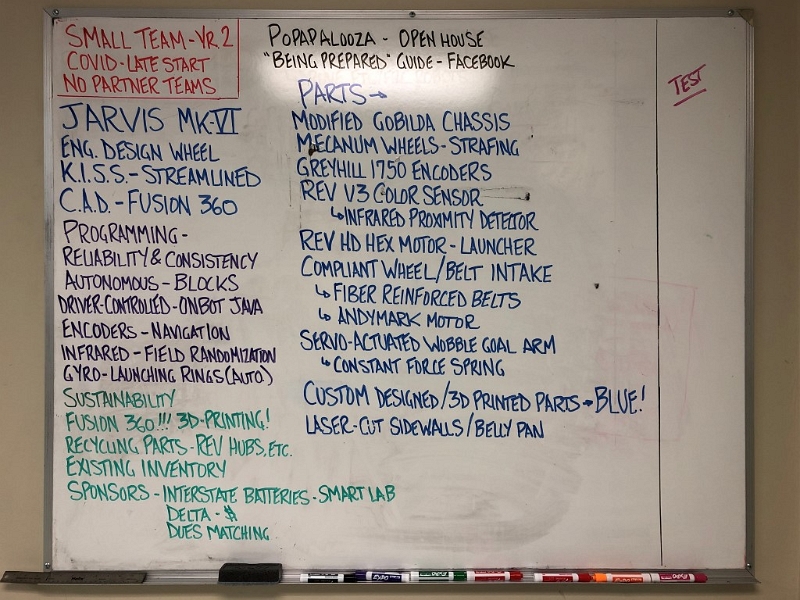 SMALL TEAM-YR 2
COVID-LATE START
NO PARTNER TEAMS
JARVIS MK-VI
ENG. DESIGN WHEEL
K.I.S.S.-STREAMLINED
C.A.D.-FUSION 360
PROGRAMMING-
RELIABILITY & CONSISTENCY
AUTONOMOUS-BLOCKS
DRIVER-CONTROLLED-ONBOT JAVA
ENCODERS-NAVIGATION
INFRARED-FIELD RANDOMIZATION
GYRO-LAUNCHING RINGS (AUTO.)
SUSTAINABILITY
FUSION 360!!! 3D-PRINTING!
RECYCLING PARTS-REV HUBS, ETC.
EXISTING INVENTORY
SPONSORS-INTERSTATE BATTERIES-SMART LAB
DELTA-$
DUES MATCHING
POPAPALOOZA - OPEN HOUSE
"BEING PREPARED" GUIDE-FACEBOOK
PARTS→
MODIFIED GOBILDA CHASSIS
MECANUM WHEELS-STRAFING
GREYHILL 1750 ENCODERS
REV V3 COLOR SENSOR
↳INFRARED PROXIMITY DETECTOR
REV HD HEX MOTOR-LAUNCHER
COMPLIANT WHEEL/BELT INTAKE
↳FIBER REINFORCED BELTS
↳ANDYMARK MOTOR
SERVO-ACTUATED WOBBLE GOAL ARM
↳CONSTANT FORCE SPRING
CUSTOM DESIGNED/3D PRINTED PARTS→BLUE!
LASER-CUT SIDEWALLS/BELLY PAN
TEST